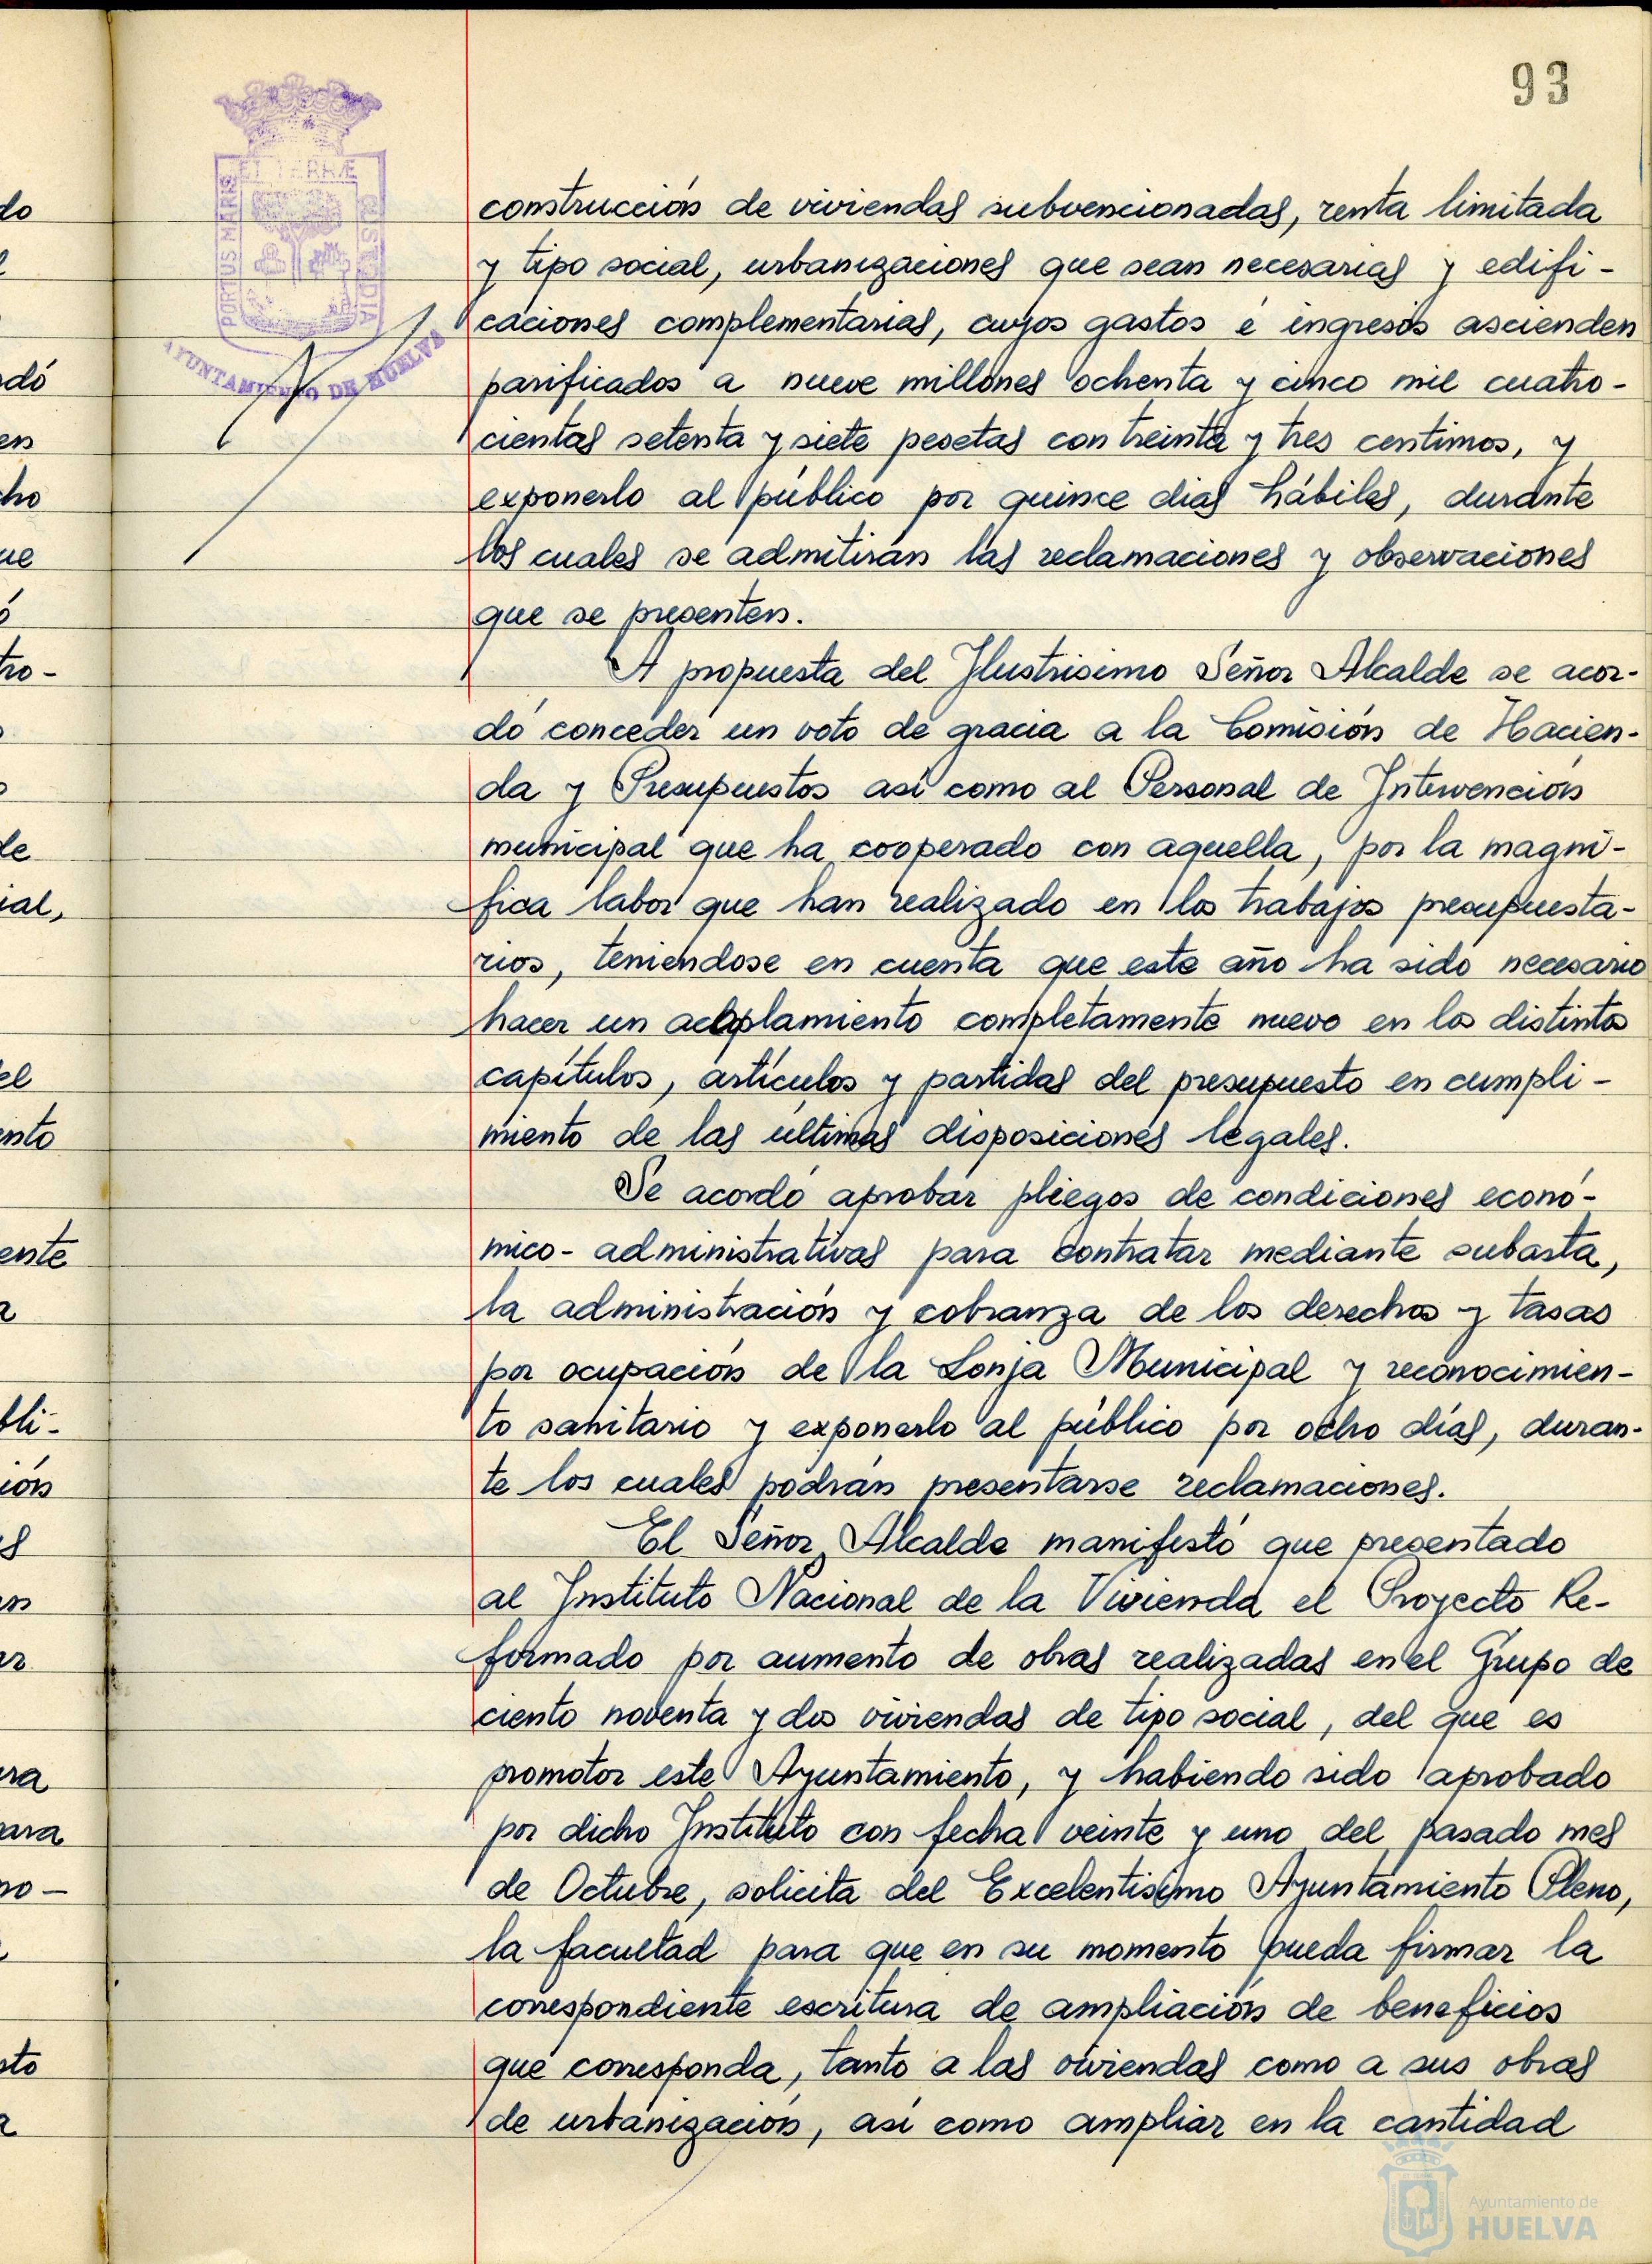 93
ET TERRÆ
PORTUS MARIS
CUSTODIA
AYUNTAMIENTO DE HUELVA
construcción de viviendas subvencionadas, renta limitada
y tipo social, urbanizaciones que sean necesarias y edifi-
caciones complementarias, cuyos gastos é ingresos ascienden
parificados a nueve millones ochenta y cinco mil cuatro-
cientas setenta y siete pesetas con treinta y tres centimos, y
exponerlo al público por quince dias hábiles, durante
los cuales se admitirán las reclamaciones y observaciones
que se presenten.
A propuesta del Ilustrisimo Señor Alcalde se acor-
dó conceder un voto de gracia a la Comisión de Hacien-
da y Presupuestos así como al Personal de Intervención
municipal que ha cooperado con aquella, por la magni-
fica labor que han realizado en los trabajos presupuesta-
rios, teniendose en cuenta que este año ha sido necesario
hacer un acoplamiento completamente nuevo en los distintos
capítulos, artículos y partidas del presupuesto en cumpli-
miento de las últimas disposiciones legales.
Se acordó aprobar pliegos de condiciones econó-
mico-administrativas para contratar mediante subasta,
la administración y cobranza de los derechos y tasas
por ocupación de la Lonja Municipal y reconocimien-
to sanitario y exponerlo al público por ocho días, duran-
te los cuales podrán presentarse reclamaciones.
El Señor Alcalde manifestó que presentado
al Instituto Nacional de la Vivienda el Proyecto Re-
formado por aumento de obras realizadas en el Grupo de
ciento noventa y dos viviendas de tipo social, del que es
promotor este Ayuntamiento, y habiendo sido aprobado
por dicho Instituto con fecha veinte y uno del pasado mes
de Octubre, solicita del Excelentisimo Ayuntamiento Pleno,
la facultad para que en su momento pueda firmar la
correspondiente escritura de ampliación de beneficios
que corresponda, tanto a las viviendas como a sus obras
de urbanización, así como ampliar en la cantidad
Ayuntamiento de
HUELVA